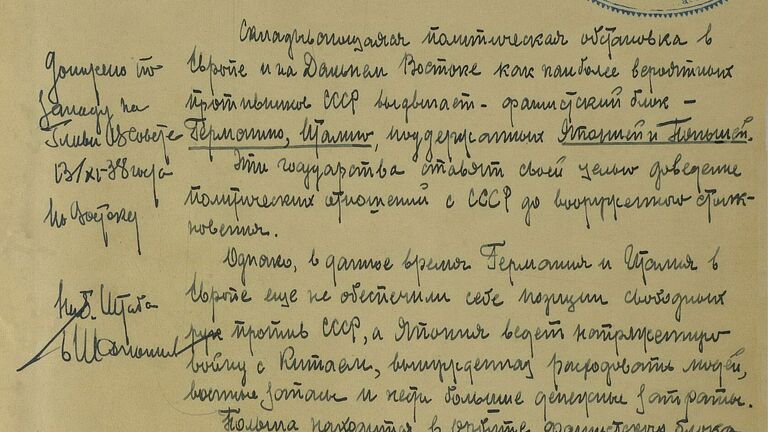 Складывающаяся политическая обстановка в
Европе и на Дальнем Востоке как наиболее вероятных
противников СССР выдвигает - фашистский блок -
Германию, Италию, поддержанных Японией и Польшей.
Эти государства ставят своей целью доведение
политических отношений с СССР до вооруженного столк-
новения.
Однако, в данное время Германия и Италия в
Европе еще не обеспечили себе позиции свободных
рук против СССР, а Япония ведет напряженную
войну с Китаем, вынужденная расходовать людей,
военные запасы и нести большие денежные затраты.
Польша находится в орбите фашистского блока
Доложено по
Западу на
Главн. В Совете
13/XI-38 года
по Востоку
Нач. Штаба